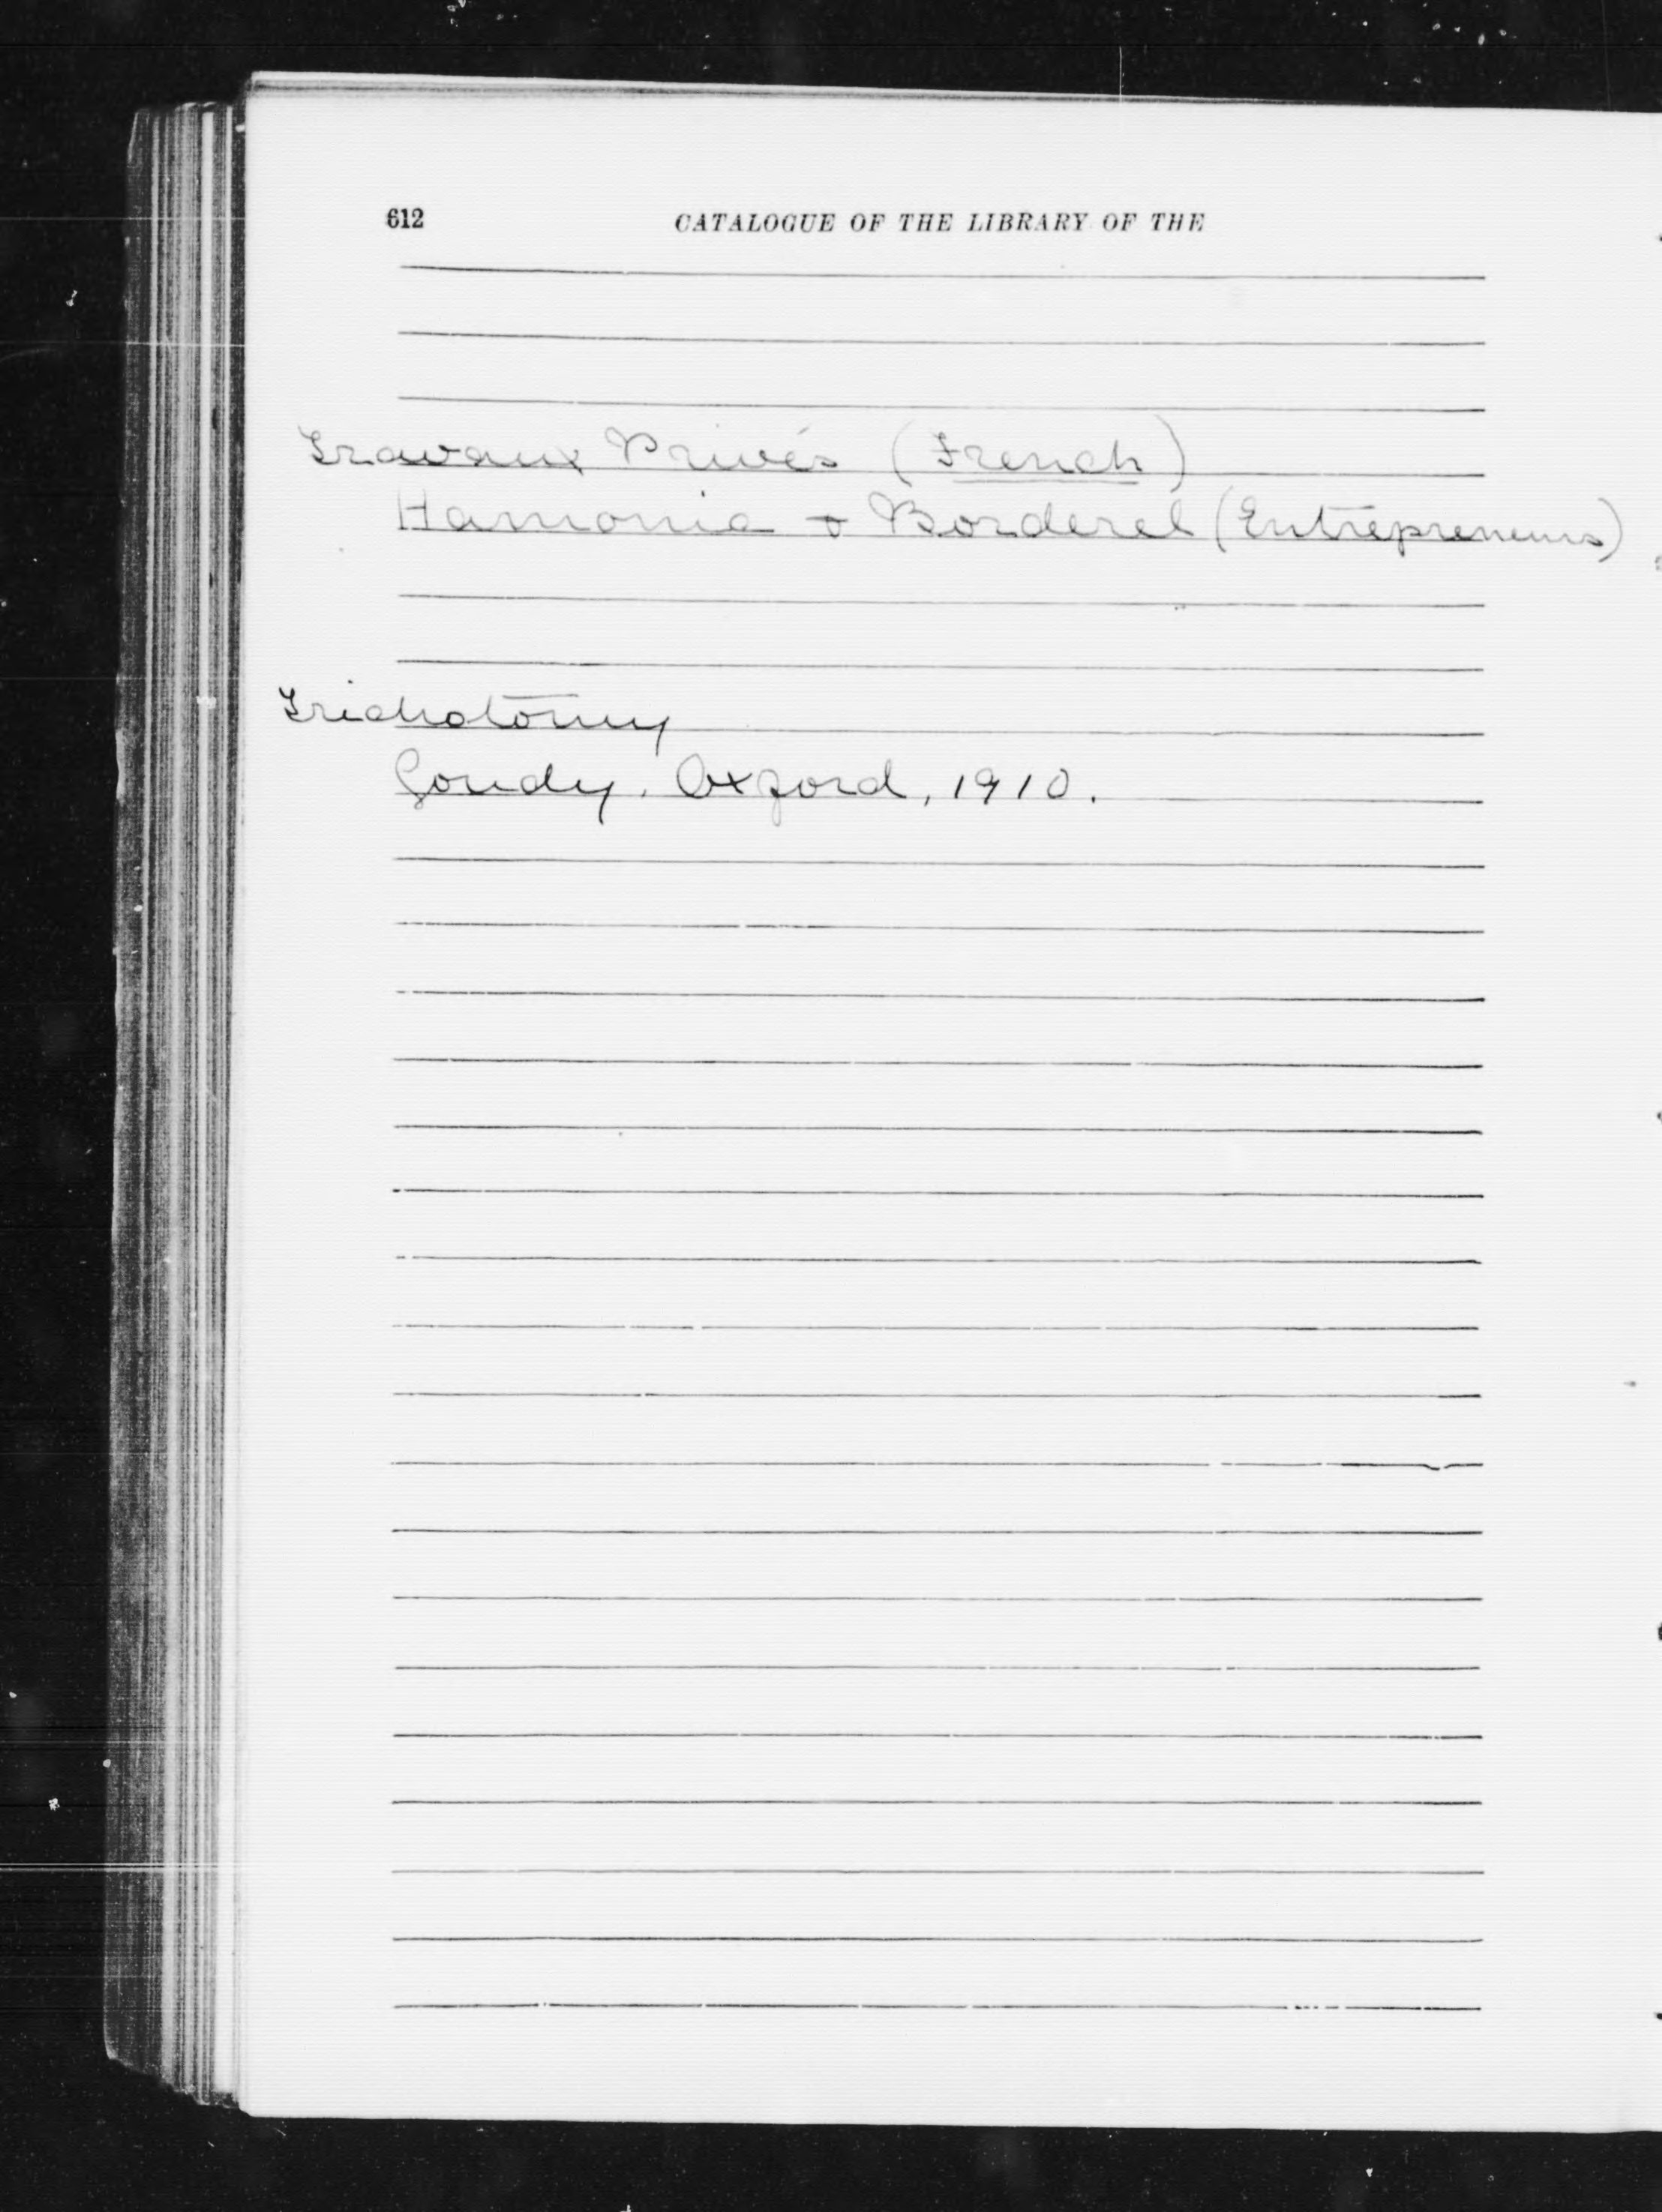 612 CATALOGUE OF THE LIBRARY OF THE
Travaux Privés (French)
Hamonic & Borderel (Entrepreneurs)
Trichotomy
Goudy. Oxford, 1910.